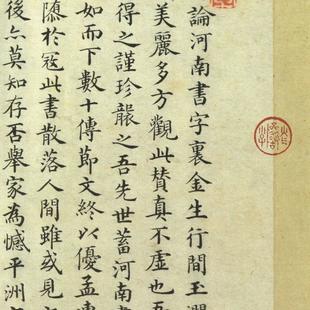 論河南書字裏金生行間玉潤
美麗多方觀此贊真不虛也吾
得之謹珍襲之吾先世蓄河南書
如而下數十傳節文終以優孟
隳於寇此書散落人間雖或見
後亦莫知存否舉家為憾平洲